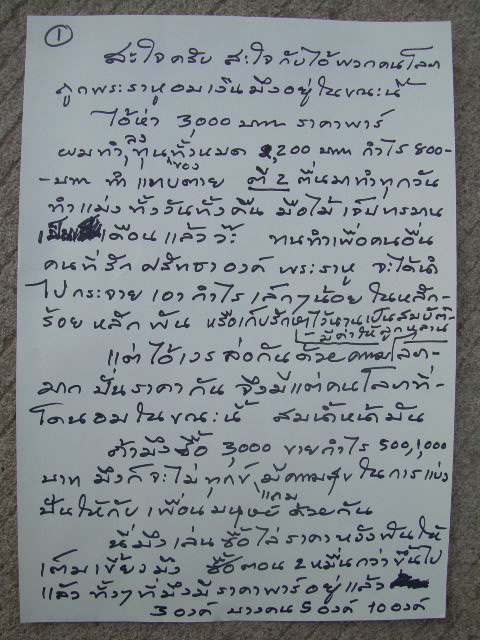 ①
สะใจครับ สะใจกับไอ้พวกคนโลภ
ถูกพระราหูอมเงินมึงอยู่ในขณะนี้
ไอ้ห่า 3,000 บาท ราคาพาร์
ผมทำ ลงทุนของทั้งหมด 2,200 บาท กำไร 800-
-บาท ทำแทบตาย ตี 2 ตื่นมาทำทุกวัน
ทำแม่งทั้งวันทั้งคืน มือไม้เจ็บทรมาน
เป็นเดือนแล้วว๊ะ ทนทำเพื่อคนอื่น
คนที่รักศรัทธาองค์พระราหู จะได้นำ
ไปกระจายเอากำไรเล็กๆน้อย ในหลัก-
ร้อยหลักพัน หรือเก็บรักษาไว้นานเป็นสมบัติ-
-มีค่าให้ลูกหลาน
แต่ไอ้เวรส่อกันด้วยความโลภ-
มาก ปั่นราคากัน จึงมีแต่คนโลภที่-
โดนอมในขณะนี้ สมน้ำหน้ามัน
ถ้ามึงซื้อ 3,000 ขายกำไร 500,1,000
บาท มึงก็จะไม่ทุกข์ แถมมีความสุขในการแบ่ง
ปันให้กับเพื่อนมนุษย์ด้วยกัน
นี่มึงเล่นซื้อไล่ราคาหวังฟันให้
เต็มเขี้ยงมึง ซื้อตอน 2 หมื่นกว่าขึ้นไป
แล้ว ทั้งๆที่มึงมีราคาพาร์อยู่แล้ว
3 องค์ บางคน 5 องค์ 10 องค์